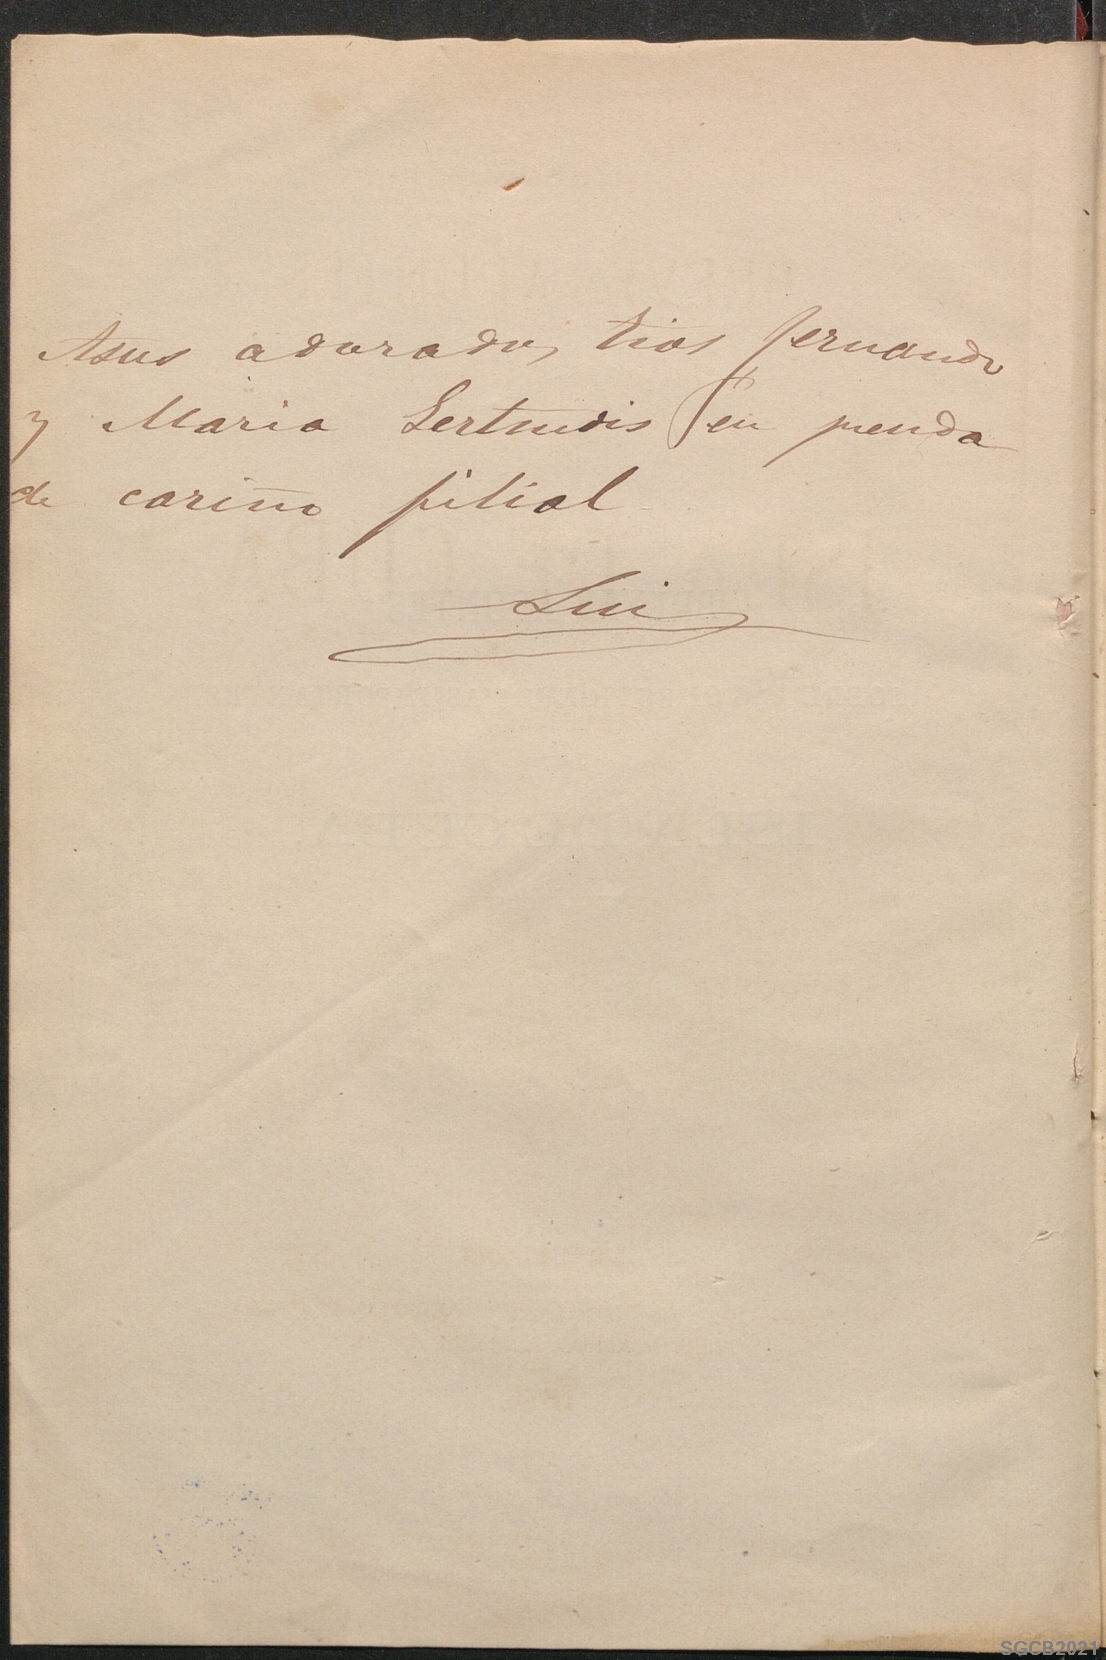 Asus adorados tios fernando
y Maria Gertrudis en prenda
de cariño filial
Luis
SGCB2021